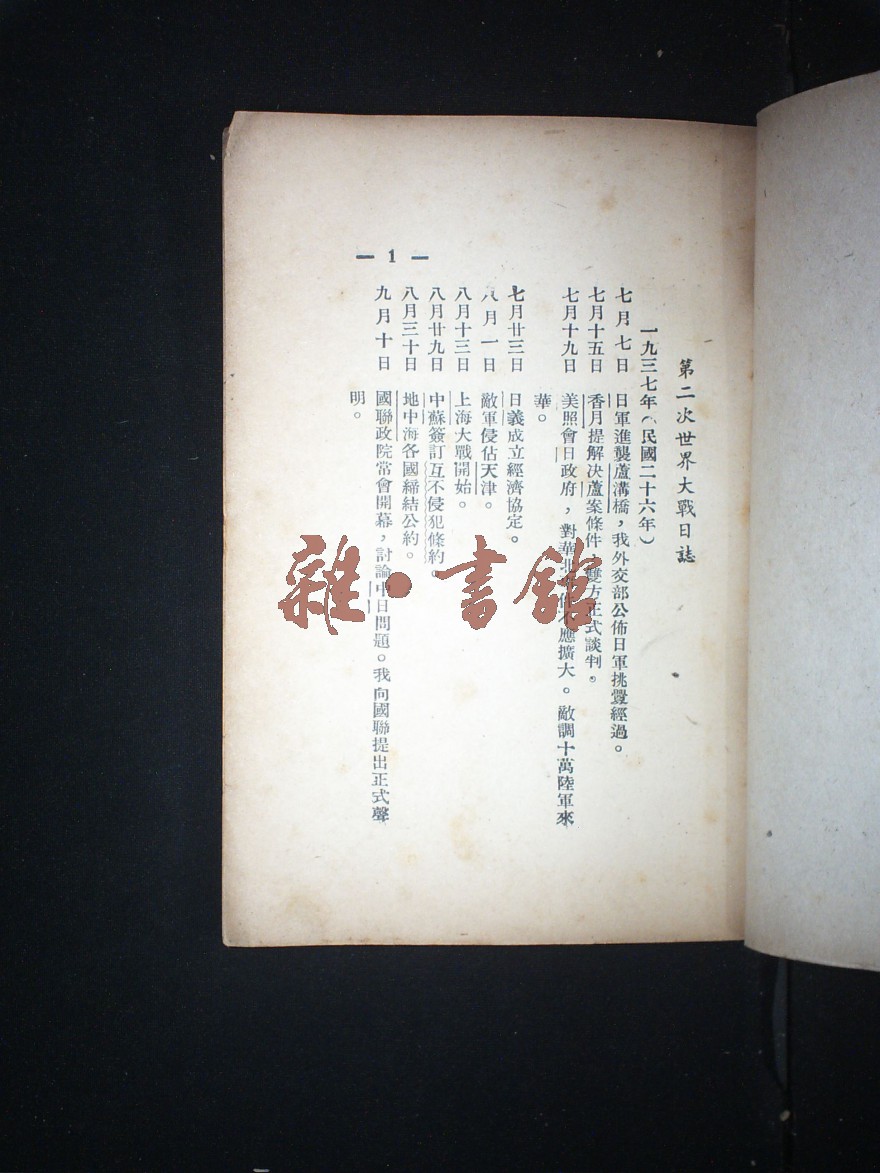 第二次世界大戰日誌
一九三七年(民國二十六年)
七月七日 日軍進襲蘆溝橋,我外交部公佈日軍挑釁經過。
七月十五日 香月提解決蘆案條件,雙方正式談判。
七月十九日 美照會日政府,對華北 應擴大。敵調十萬陸軍來
華。
七月廿三日 日義成立經濟協定。
八月一日 敵軍侵佔天津。
八月十三日 上海大戰開始。
八月廿九日 中蘇簽訂互不侵犯條約。
八月三十日 地中海各國締結公約。
九月十日 國聯政院常會開幕,討論中日問題。我向國聯提出正式聲
明。
— 1 —
雜·書館